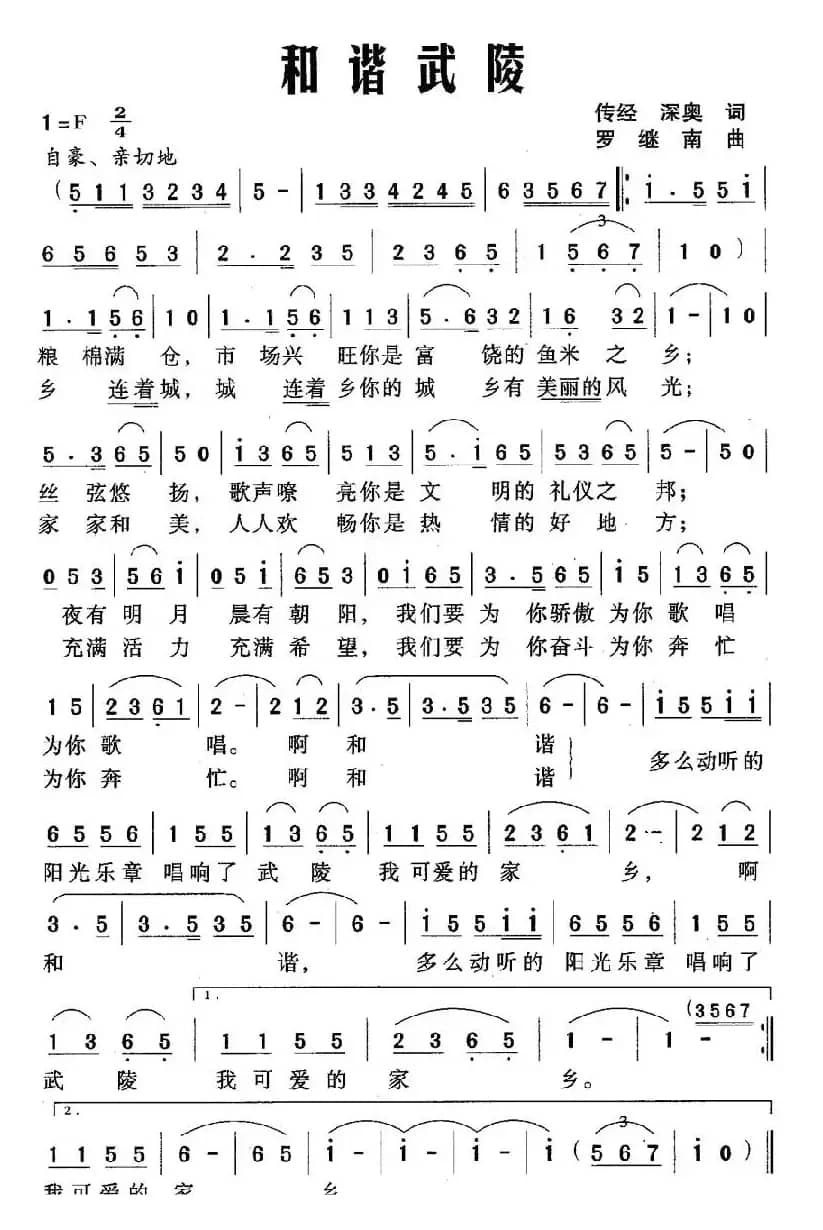 和谐武陵
1=F 2/4
传经 深奥 词
罗 继 南 曲
自豪、亲切地
(5 1 1 3 2 3 4 | 5 - | 1 3 3 4 2 4 5 | 6 3 5 6 7 |: i . 5 5 i
6 5 6 5 3 | 2 . 2 3 5 | 2 3 6 5 | 1 5 6 7 | 1 0 )
3
1 . 1 5 6 | 1 0 | 1 . 1 5 6 | 1 1 3 | 5 . 6 3 2 | 1 6 3 2 | 1 - | 1 0
粮 棉满 仓, 市 场兴 旺你是富 饶的鱼米 之 乡;
乡 连着城, 城 连着乡你的城 乡有美丽的风 光;
5 . 3 6 5 | 5 0 | i 3 6 5 | 5 1 3 | 5 . i 6 5 | 5 3 6 5 | 5 - | 5 0
丝 弦悠 扬, 歌声嘹 亮你是文 明的礼仪之 邦;
家 家和 美, 人人欢 畅你是热 情的好 地 方;
0 5 3 | 5 6 i | 0 5 i | 6 5 3 | 0 i 6 5 | 3 . 5 6 5 | i 5 | 1 3 6 5
夜有 明 月 晨有 朝 阳, 我们要 为 你骄傲 为你 歌 唱
充满 活 力 充满 希 望, 我们要 为 你奋斗 为你 奔 忙
1 5 | 2 3 6 1 | 2 - | 2 1 2 | 3 . 5 | 3 . 5 3 5 | 6 - | 6 - | i 5 5 i i
为你 歌 唱。 啊 和 谐
为你 奔 忙。 啊 和 谐
多么动听的
6 5 5 6 | 1 5 5 | 1 3 6 5 | 1 1 5 5 | 2 3 6 1 | 2 - | 2 1 2
阳光乐章 唱响了 武 陵 我 可爱的 家 乡, 啊
3 . 5 | 3 . 5 3 5 | 6 - | 6 - | i 5 5 i i | 6 5 5 6 | 1 5 5
和 谐, 多么动听的 阳光乐章 唱响了
1.
(3 5 6 7
1 3 6 5 | 1 1 5 5 | 2 3 6 5 | 1 - | 1 - :|
武 陵 我可爱的 家 乡。
2.
3
1 1 5 5 | 6 - | 6 5 | i - | i - | i - | i ( 5 6 7 | i 0 )
我可爱的 家 乡